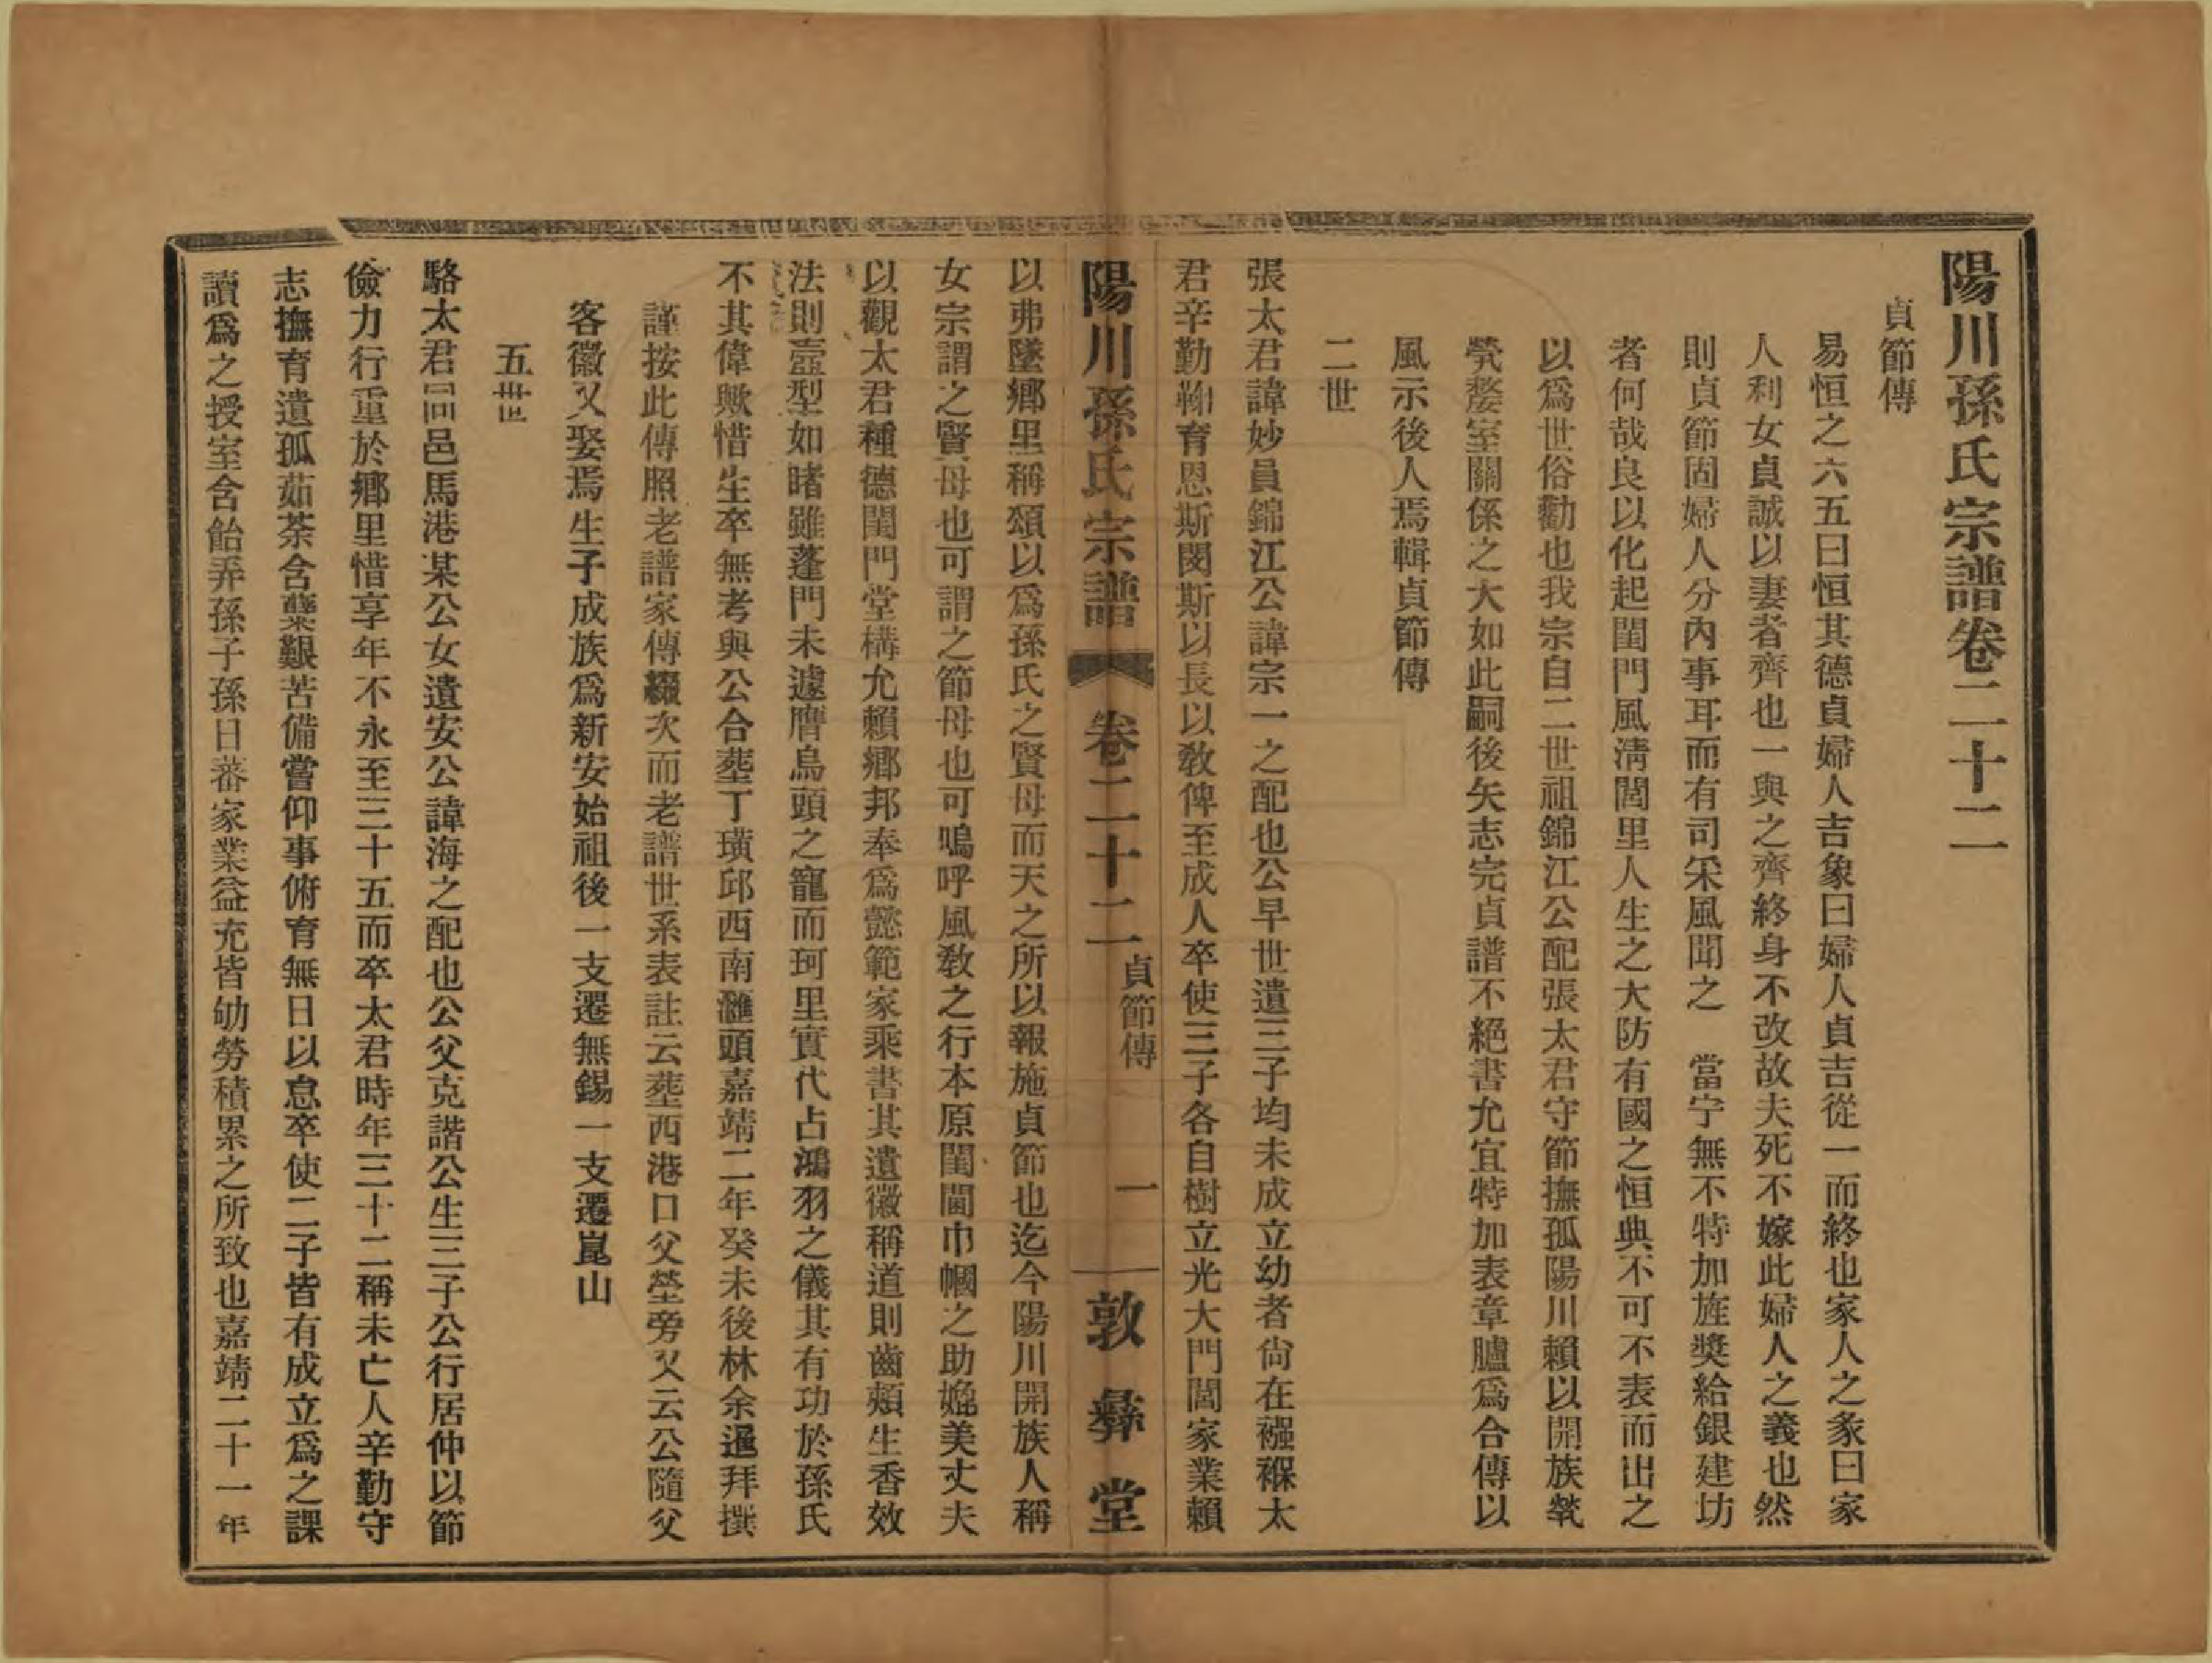 陽川孫氏宗譜卷二十二
貞節傳
易恒之六五曰恒其德貞婦人吉象曰婦人貞吉從一而終也家人之彖曰家
人利女貞誠以妻者齊也一與之齊終身不改故夫死不嫁此婦人之義也然
則貞節固婦人分內事耳而有司采風聞之　當宁無不特加旌獎給銀建坊
者何哉良以化起閨門風淸閭里人生之大防有國之恒典不可不表而出之
以爲世俗勸也我宗自二世祖錦江公配張太君守節撫孤陽川賴以開族煢
煢嫠室關係之大如此嗣後矢志完貞譜不絕書允宜特加表章臚爲合傳以
風示後人焉輯貞節傳
二世
張太君諱妙員錦江公諱宗一之配也公早世遺三子均未成立幼者尙在襁褓太
君辛勤鞠育恩斯閔斯以長以敎俾至成人卒使三子各自樹立光大門閭家業賴
陽川孫氏宗譜　卷二十二　貞節傳　一　敦彝堂
以弗墜鄉里稱頌以爲孫氏之賢母而天之所以報施貞節也迄今陽川開族人稱
女宗謂之賢母也可謂之節母也可嗚呼風敎之行本原閨閫巾幗之助媲美丈夫
以觀太君種德閨門堂構允賴鄉邦奉爲懿範家乘書其遺徽稱道則齒頰生香效
法則壼型如睹雖蓬門未遽膺烏頭之寵而珂里實代占鴻羽之儀其有功於孫氏
不其偉歟惜生卒無考與公合塟丁璜邱西南滙頭嘉靖二年癸未後林余邋拜撰
謹按此傳照老譜家傳綴次而老譜世系表註云塟西港口父塋旁又云公隨父
客徽又娶焉生子成族爲新安始祖後一支遷無錫一支遷崑山
五世
駱太君同邑馬港某公女遺安公諱海之配也公父克諧公生三子公行居仲以節
儉力行重於鄉里惜享年不永至三十五而卒太君時年三十二稱未亡人辛勤守
志撫育遺孤茹荼含蘗艱苦備嘗仰事俯育無日以怠卒使二子皆有成立爲之課
讀爲之授室含飴弄孫子孫日蕃家業益充皆劬勞積累之所致也嘉靖二十一年